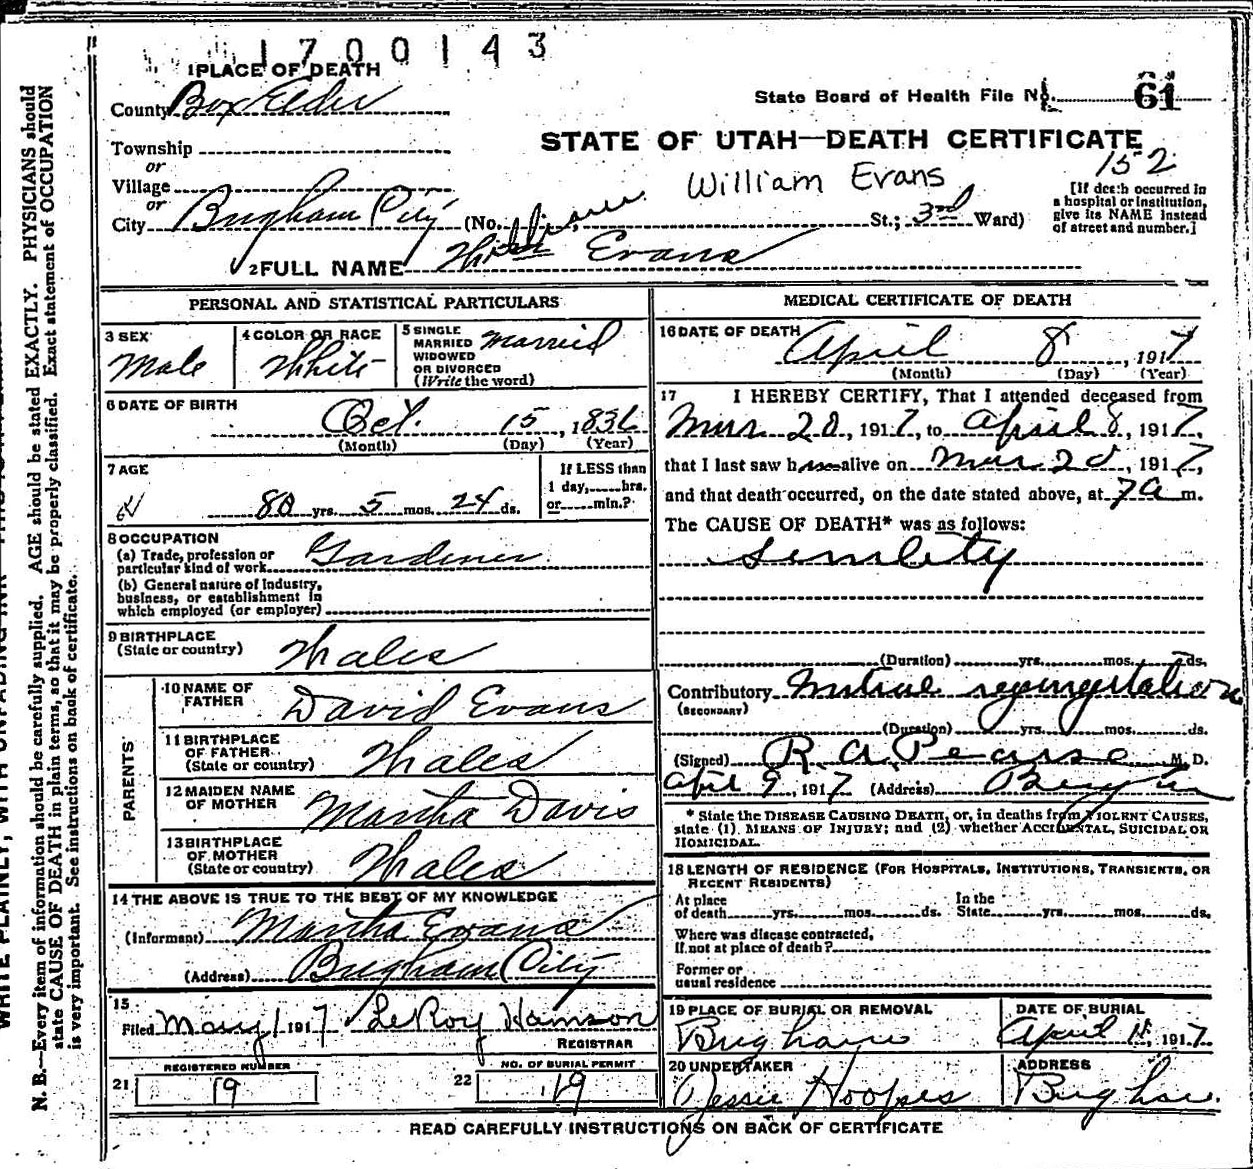 1700143
1 PLACE OF DEATH
County Box Elder
State Board of Health File No. 61
STATE OF UTAH—DEATH CERTIFICATE
152
Township
or
Village
or
William Evans
City Brigham City (No. St.; 3rd Ward)
[If death occurred in
a hospital or institution,
give its NAME instead
of street and number.]
2 FULL NAME Evans
PERSONAL AND STATISTICAL PARTICULARS
3 SEX
Male
4 COLOR OR RACE
White
5 SINGLE
MARRIED
WIDOWED
OR DIVORCED
(Write the word)
Married
6 DATE OF BIRTH
Oct. 15, 1836
(Month) (Day) (Year)
7 AGE
80 yrs. 5 mos. 24 ds.
If LESS than
1 day,......hrs.
or......min.?
8 OCCUPATION
(a) Trade, profession or
particular kind of work Gardiner
(b) General nature of Industry,
business, or establishment in
which employed (or employer)
9 BIRTHPLACE
(State or country) Wales
PARENTS
10 NAME OF
FATHER David Evans
11 BIRTHPLACE
OF FATHER
(State or country) Wales
12 MAIDEN NAME
OF MOTHER Martha Davis
13 BIRTHPLACE
OF MOTHER
(State or country) Wales
14 THE ABOVE IS TRUE TO THE BEST OF MY KNOWLEDGE
(Informant) Martha Evans
(Address) Brigham City
15
Filed May 1 1917 LeRoy
REGISTRAR
REGISTERED NUMBER
21 19
NO. OF BURIAL PERMIT
22 19
MEDICAL CERTIFICATE OF DEATH
16 DATE OF DEATH
April 8, 1917
(Month) (Day) (Year)
17 I HEREBY CERTIFY, That I attended deceased from
Mar 20, 1917, to April 8, 1917,
that I last saw h alive on Mar 20, 1917,
and that death occurred, on the date stated above, at 7 a m.
The CAUSE OF DEATH* was as follows:
senility
(Duration) yrs. mos. ds.
Contributory mitral regurgitation
(SECONDARY)
(Duration) yrs. mos. ds.
(Signed) R. A. Pearse M. D.
April 9, 1917 (Address) Brigham
* State the DISEASE CAUSING DEATH, or, in deaths from VIOLENT CAUSES,
state (1) MEANS OF INJURY; and (2) whether ACCIDENTAL, SUICIDAL OR
HOMICIDAL.
18 LENGTH OF RESIDENCE (FOR HOSPITALS, INSTITUTIONS, TRANSIENTS, OR
RECENT RESIDENTS)
At place
of death yrs. mos. ds.
In the
State yrs. mos. ds.
Where was disease contracted,
If not at place of death?
Former or
usual residence
19 PLACE OF BURIAL OR REMOVAL
Brigham
DATE OF BURIAL
April 1917
20 UNDERTAKER
Jessie Hoopes
ADDRESS
Brigham
READ CAREFULLY INSTRUCTIONS ON BACK OF CERTIFICATE
N. B.—Every item of information should be carefully supplied. AGE should be stated EXACTLY. PHYSICIANS should
state CAUSE OF DEATH in plain terms, so that it may be properly classified. Exact statement of OCCUPATION
is very important. See instructions on back of certificate.